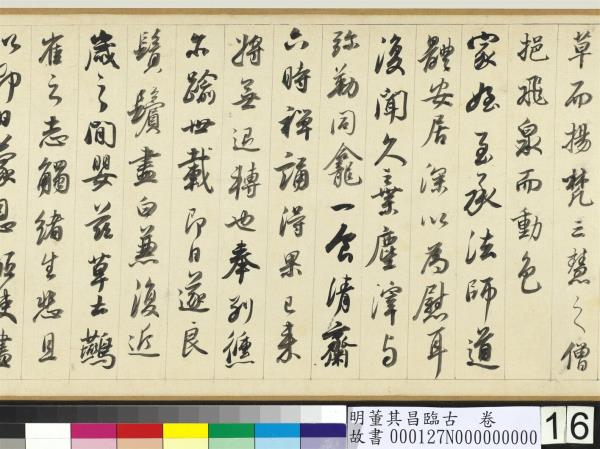 草而揚梵三慧之僧
挹飛泉而動色
家姪至承法師道
體安居深以為慰耳
復聞久棄塵滓与
弥勒同龕一食清齋
六時禪誦得果已来
將無退轉也奉別儵
尒踰世載即日遂良
鬚鬢盡白兼復近
歲之間嬰茲草土鷰
雀之志觸緒生悲且
以即日蒙恩驅使盡
明董其昌臨古 卷
故書 000127N000000000
16